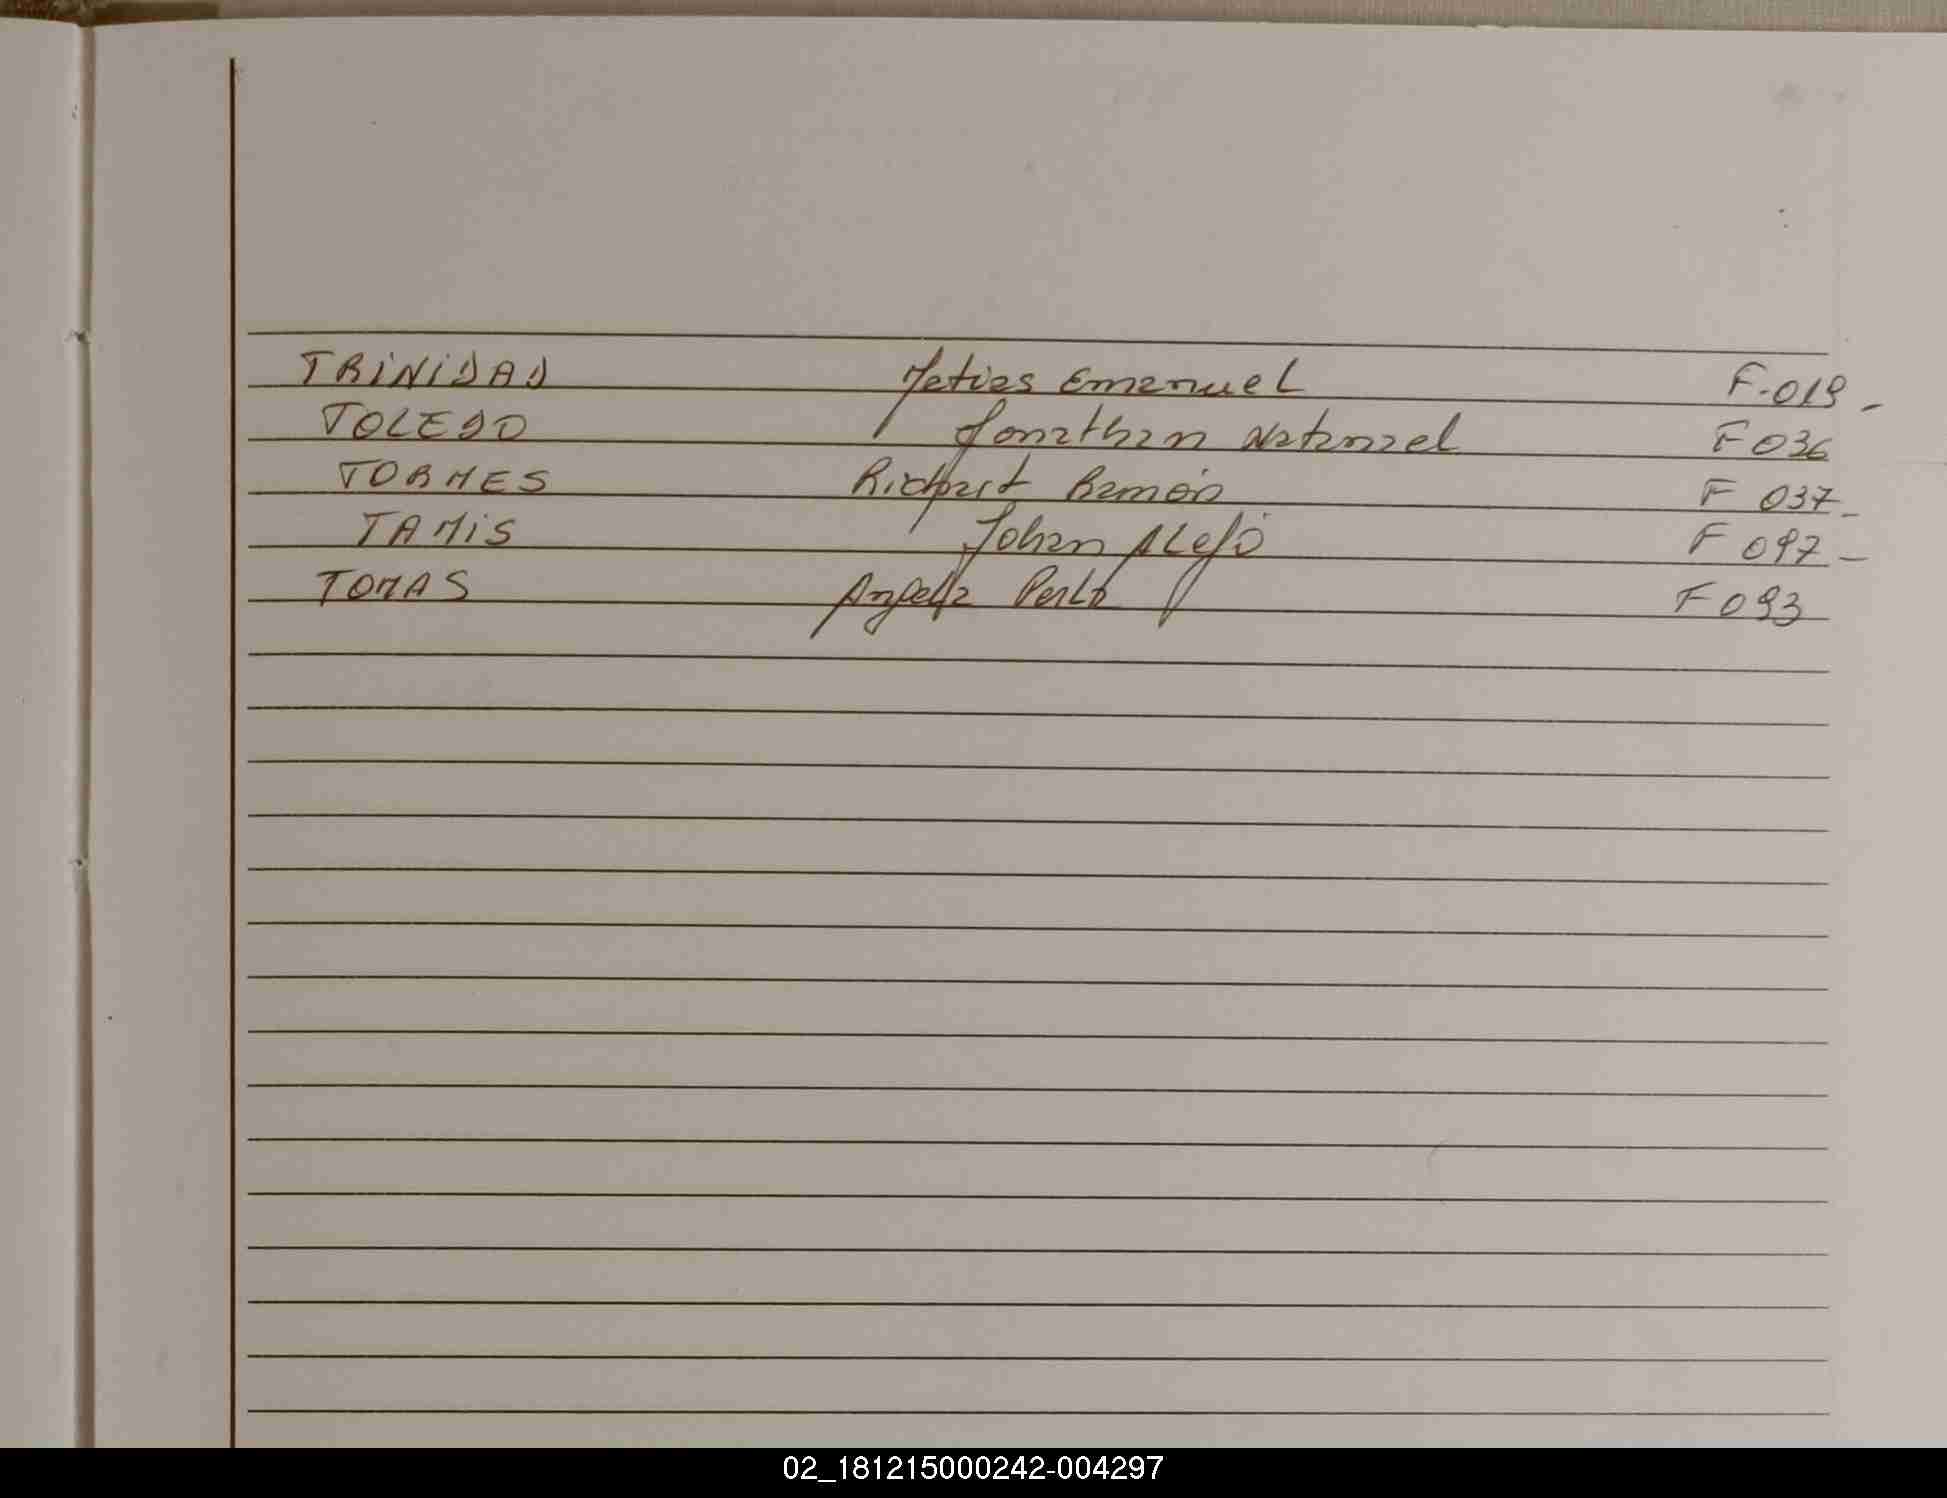 TRINIDAD Matias Emanuel F.019-
TOLEDO Jonathan Natanael F 036
TORMES Richart Ramón F 037-
TAMIS Johan Alejo F 097-
TOMAS Angela Perla F 093
02_181215000242-004297